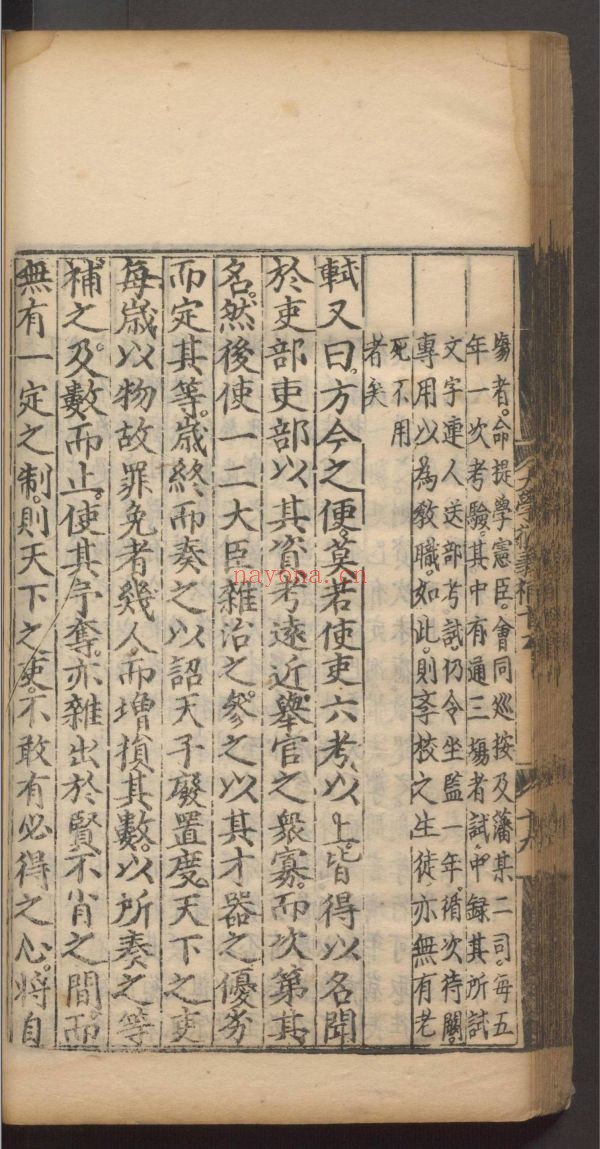 塲者。命提學憲臣。會同巡按及藩臬二司。每五
年一次考驗。其中有通三塲者試中録其所試
文字連人送部考試。仍令坐監一年。循次待闕。
專用以為敎職。如此。則斈校之生徒。亦無有老
死不用
者矣
軾又曰。方今之便。莫若使吏六考以上。皆得以名聞
於吏部吏部以其資考遠近舉官之衆寡。而次第其
名。然後使一二大臣雜治之。參之以其才器之優劣
而定其等。歲終而奏之。以詔天子廢置。度天下之吏
每歲以物故罪免者幾人。而增損其數。以所奏之等
補之。及數而止。使其予奪。亦雜出於賢不肖之間。而
無有一定之制。則天下之吏。不敢有必得之心。將自
大學
nayona.cn